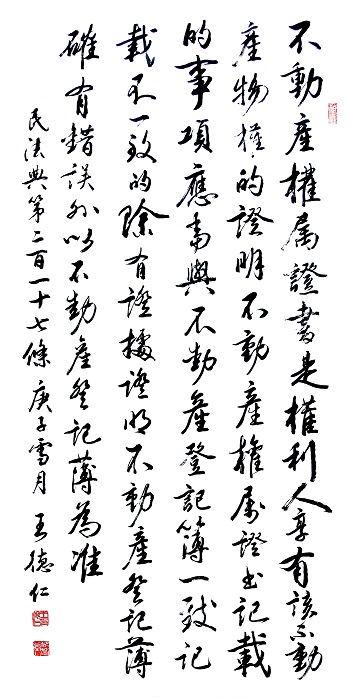 不動產權属證書是權利人享有該不動
產物權的證明不動產權属證书記載
的事項應當與不動產登記簿一致記
載不一致的除有證據證明不動產登記薄
確有錯誤外以不動產登記薄為准
民法典第二百一十七條庚子雪月王德仁